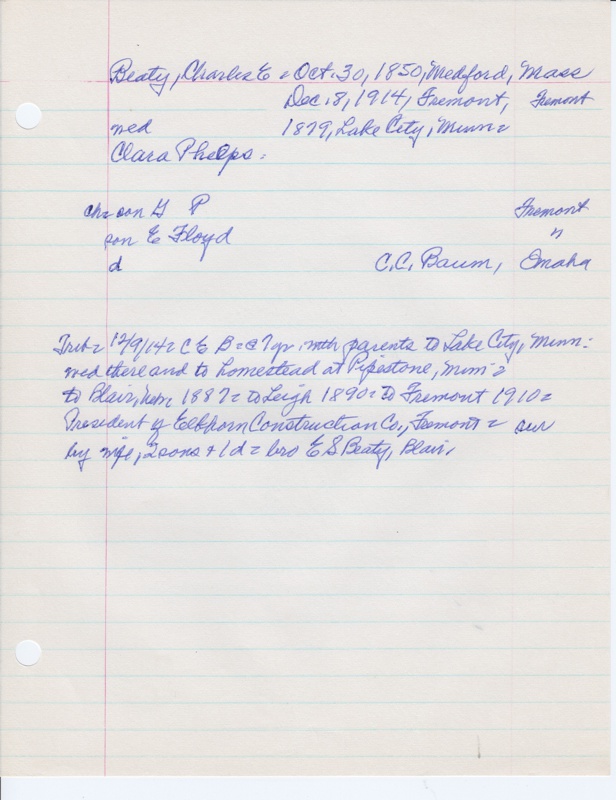 Beaty, Charles E = Oct. 30, 1850, Medford, Mass
Dec. 8, 1914, Fremont, Fremont
wed 1879, Lake City, Minn =
Clara Phelps =
ch = son G P Fremont
son E Floyd "
d C.C. Baum, Omaha
Trib = 12/9/14 = C E B = @ 7 yr. with parents to Lake City, Minn =
wed there and to homestead at Pipestone, Minn =
to Blair, Nebr 1887 = to Leigh 1890 = to Fremont 1910 =
President of Elkhorn Construction Co., Fremont = sur
by wife, 2 sons + 1 d = bro E S Beaty, Blair,